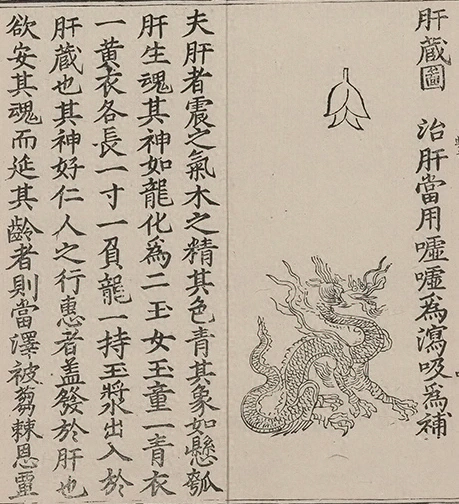 肝蔵圖 治肝當用噓噓為瀉吸為補
夫肝者震之氣木之精其色青其象如懸瓠
肝生魂其神如龍化為二玉女玉童一青衣
一黄衣各長一寸一負龍一持玉漿出入於
肝蔵也其神好仁人之行惠者盖發於肝也
欲安其魂而延其齡者則當澤被芻棘恩